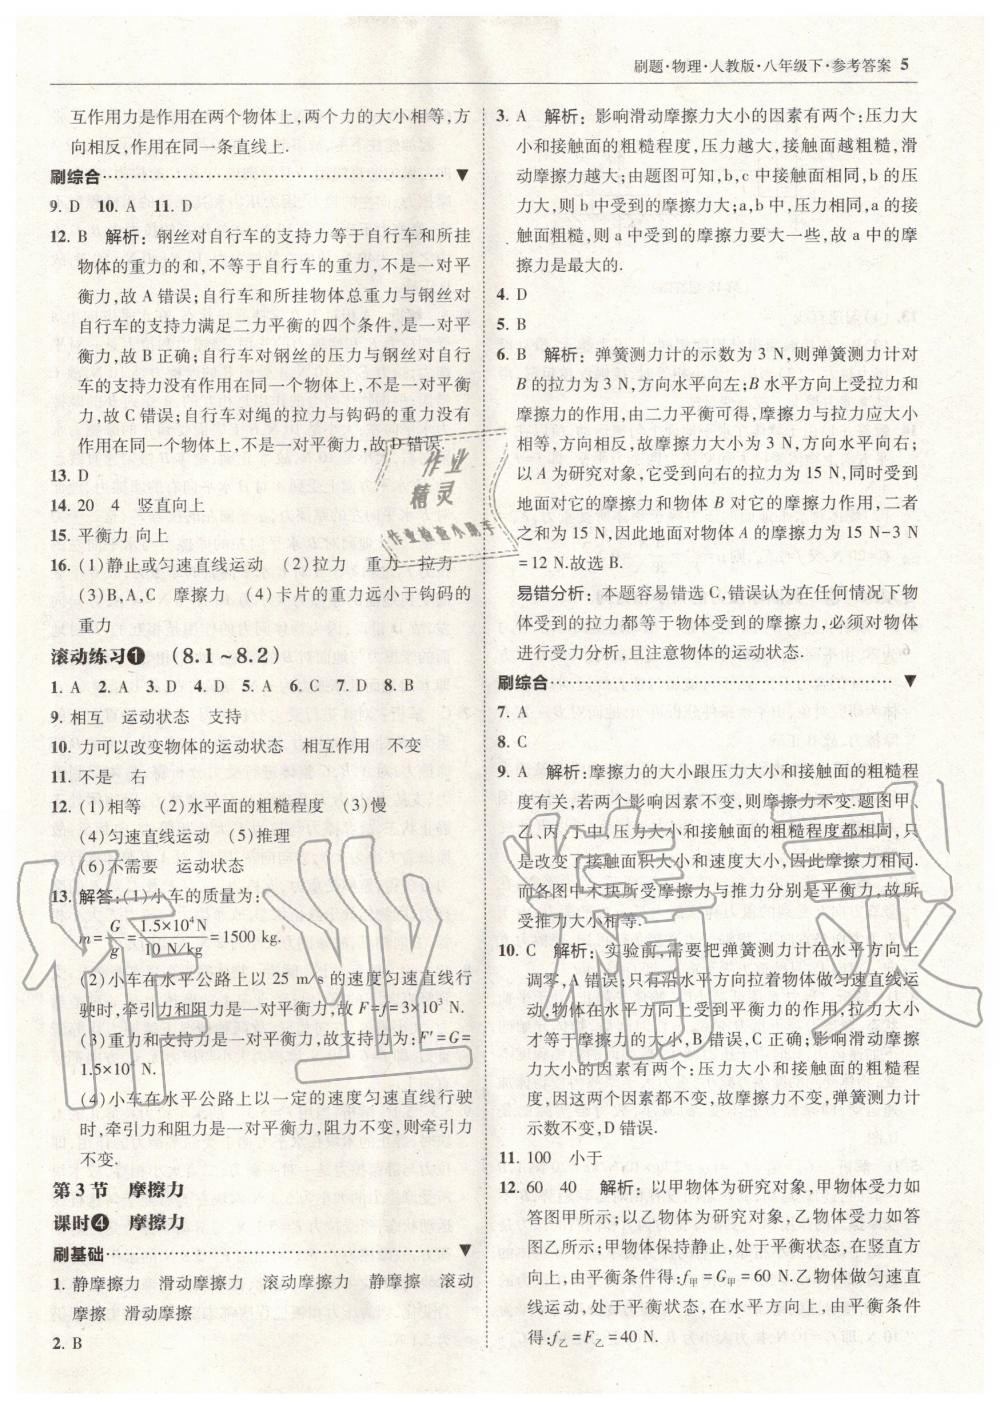 刷题·物理·人教版·八年级下·参考答案 5
互作用力是作用在两个物体上,两个力的大小相等,方
向相反,作用在同一条直线上.
刷综合
9. D 10. A 11. D
12. B 解析:钢丝对自行车的支持力等于自行车和所挂
物体的重力的和,不等于自行车的重力,不是一对平
衡力,故 A 错误;自行车和所挂物体总重力与钢丝对
自行车的支持力满足二力平衡的四个条件,是一对平
衡力,故 B 正确;自行车对钢丝的压力与钢丝对自行
车的支持力没有作用在同一个物体上,不是一对平衡
力,故 C 错误;自行车对绳的拉力与钩码的重力没有
作用在同一个物体上,不是一对平衡力,故 D 错误.
13. D
14. 20 4 竖直向上
15. 平衡力 向上
16. (1)静止或匀速直线运动 (2)拉力 重力 拉力
(3)B,A,C 摩擦力 (4)卡片的重力远小于钩码的
重力
滚动练习❶ (8.1~8.2)
1. A 2. A 3. D 4. D 5. A 6. C 7. D 8. B
9. 相互 运动状态 支持
10. 力可以改变物体的运动状态 相互作用 不变
11. 不是 右
12. (1)相等 (2)水平面的粗糙程度 (3)慢
(4)匀速直线运动 (5)推理
(6)不需要 运动状态
13. 解答:(1)小车的质量为:
m=G/g=1.5×10⁴N/10 N/kg=1500 kg.
(2)小车在水平公路上以 25 m/s 的速度匀速直线行
驶时,牵引力和阻力是一对平衡力,故 F=f=3×10³ N.
(3)重力和支持力是一对平衡力,故支持力为:F′=G=
1.5×10⁴ N.
(4)小车在水平公路上以一定的速度匀速直线行驶
时,牵引力和阻力是一对平衡力,阻力不变,则牵引力
不变.
第 3 节 摩擦力
课时❹ 摩擦力
刷基础
1. 静摩擦力 滑动摩擦力 滚动摩擦力 静摩擦 滚动
摩擦 滑动摩擦
2. B
3. A 解析:影响滑动摩擦力大小的因素有两个:压力大
小和接触面的粗糙程度,压力越大,接触面越粗糙,滑
动摩擦力越大;由题图可知,b,c 中接触面相同,b 的压
力大,则 b 中受到的摩擦力大;a,b 中,压力相同,a 的接
触面粗糙,则 a 中受到的摩擦力要大一些,故 a 中的摩
擦力是最大的.
4. D
5. B
6. B 解析:弹簧测力计的示数为 3 N,则弹簧测力计对
B 的拉力为 3 N,方向水平向左;B 水平方向上受拉力和
摩擦力的作用,由二力平衡可得,摩擦力与拉力应大小
相等,方向相反,故摩擦力大小为 3 N,方向水平向右;
以 A 为研究对象,它受到向右的拉力为 15 N,同时受到
地面对它的摩擦力和物体 B 对它的摩擦力作用,二者
之和为 15 N,因此地面对物体 A 的摩擦力为 15 N-3 N
=12 N.故选 B.
易错分析:本题容易错选 C,错误认为在任何情况下物
体受到的拉力都等于物体受到的摩擦力,必须对物体
进行受力分析,且注意物体的运动状态.
刷综合
7. A
8. C
9. A 解析:摩擦力的大小跟压力大小和接触面的粗糙程
度有关,若两个影响因素不变,则摩擦力不变.题图甲、
乙、丙、丁中,压力大小和接触面的粗糙程度都相同,只
是改变了接触面积大小和速度大小,因此摩擦力相同.
而各图中木块所受摩擦力与推力分别是平衡力,故所
受推力大小相等.
10. C 解析:实验前,需要把弹簧测力计在水平方向上
调零,A 错误;只有沿水平方向拉着物体做匀速直线运
动,物体在水平方向上受到平衡力的作用,拉力大小
才等于摩擦力的大小,B 错误,C 正确;影响摩擦力大
小的因素有两个:压力大小和接触面的粗糙程
度,因这两个因素都不变,故摩擦力不变,弹簧测力计
示数不变,D 错误.
11. 100 小于
12. 60 40 解析:以甲物体为研究对象,甲物体受力如
答图甲所示;以乙物体为研究对象,乙物体受力如答
图乙所示;甲物体保持静止,处于平衡状态,在竖直方
向上,由平衡条件得:f甲=G甲=60 N.乙物体做匀速直
线运动,处于平衡状态,在水平方向上,由平衡条件
得:f乙=F乙=40 N.
作业
精灵
作业检查小助手
作业精灵